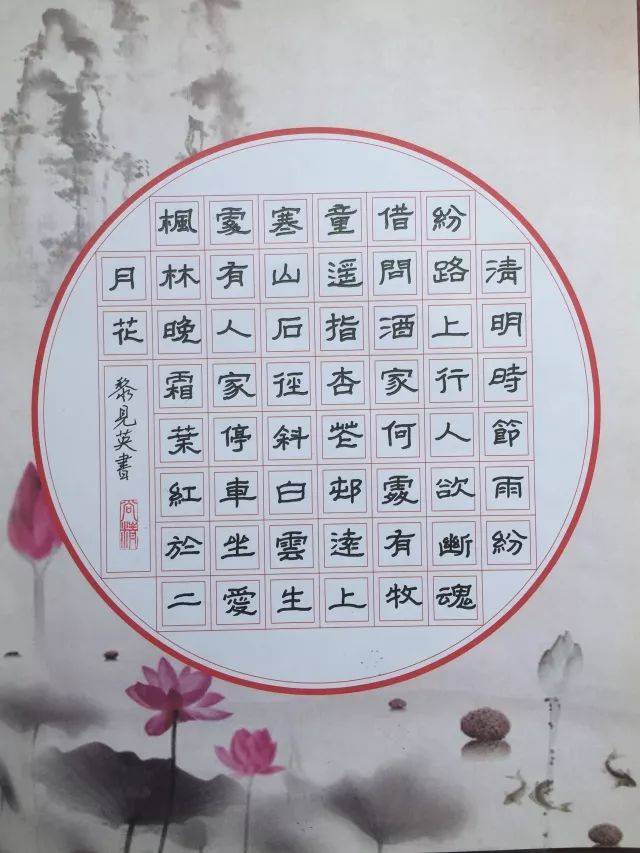 清明時節雨紛
紛路上行人欲斷魂
借問酒家何處有牧
童遥指杏花邨逺上
寒山石徑斜白雲生
處有人家停車坐愛
楓林晚霜葉紅於二
月花
黎見英書